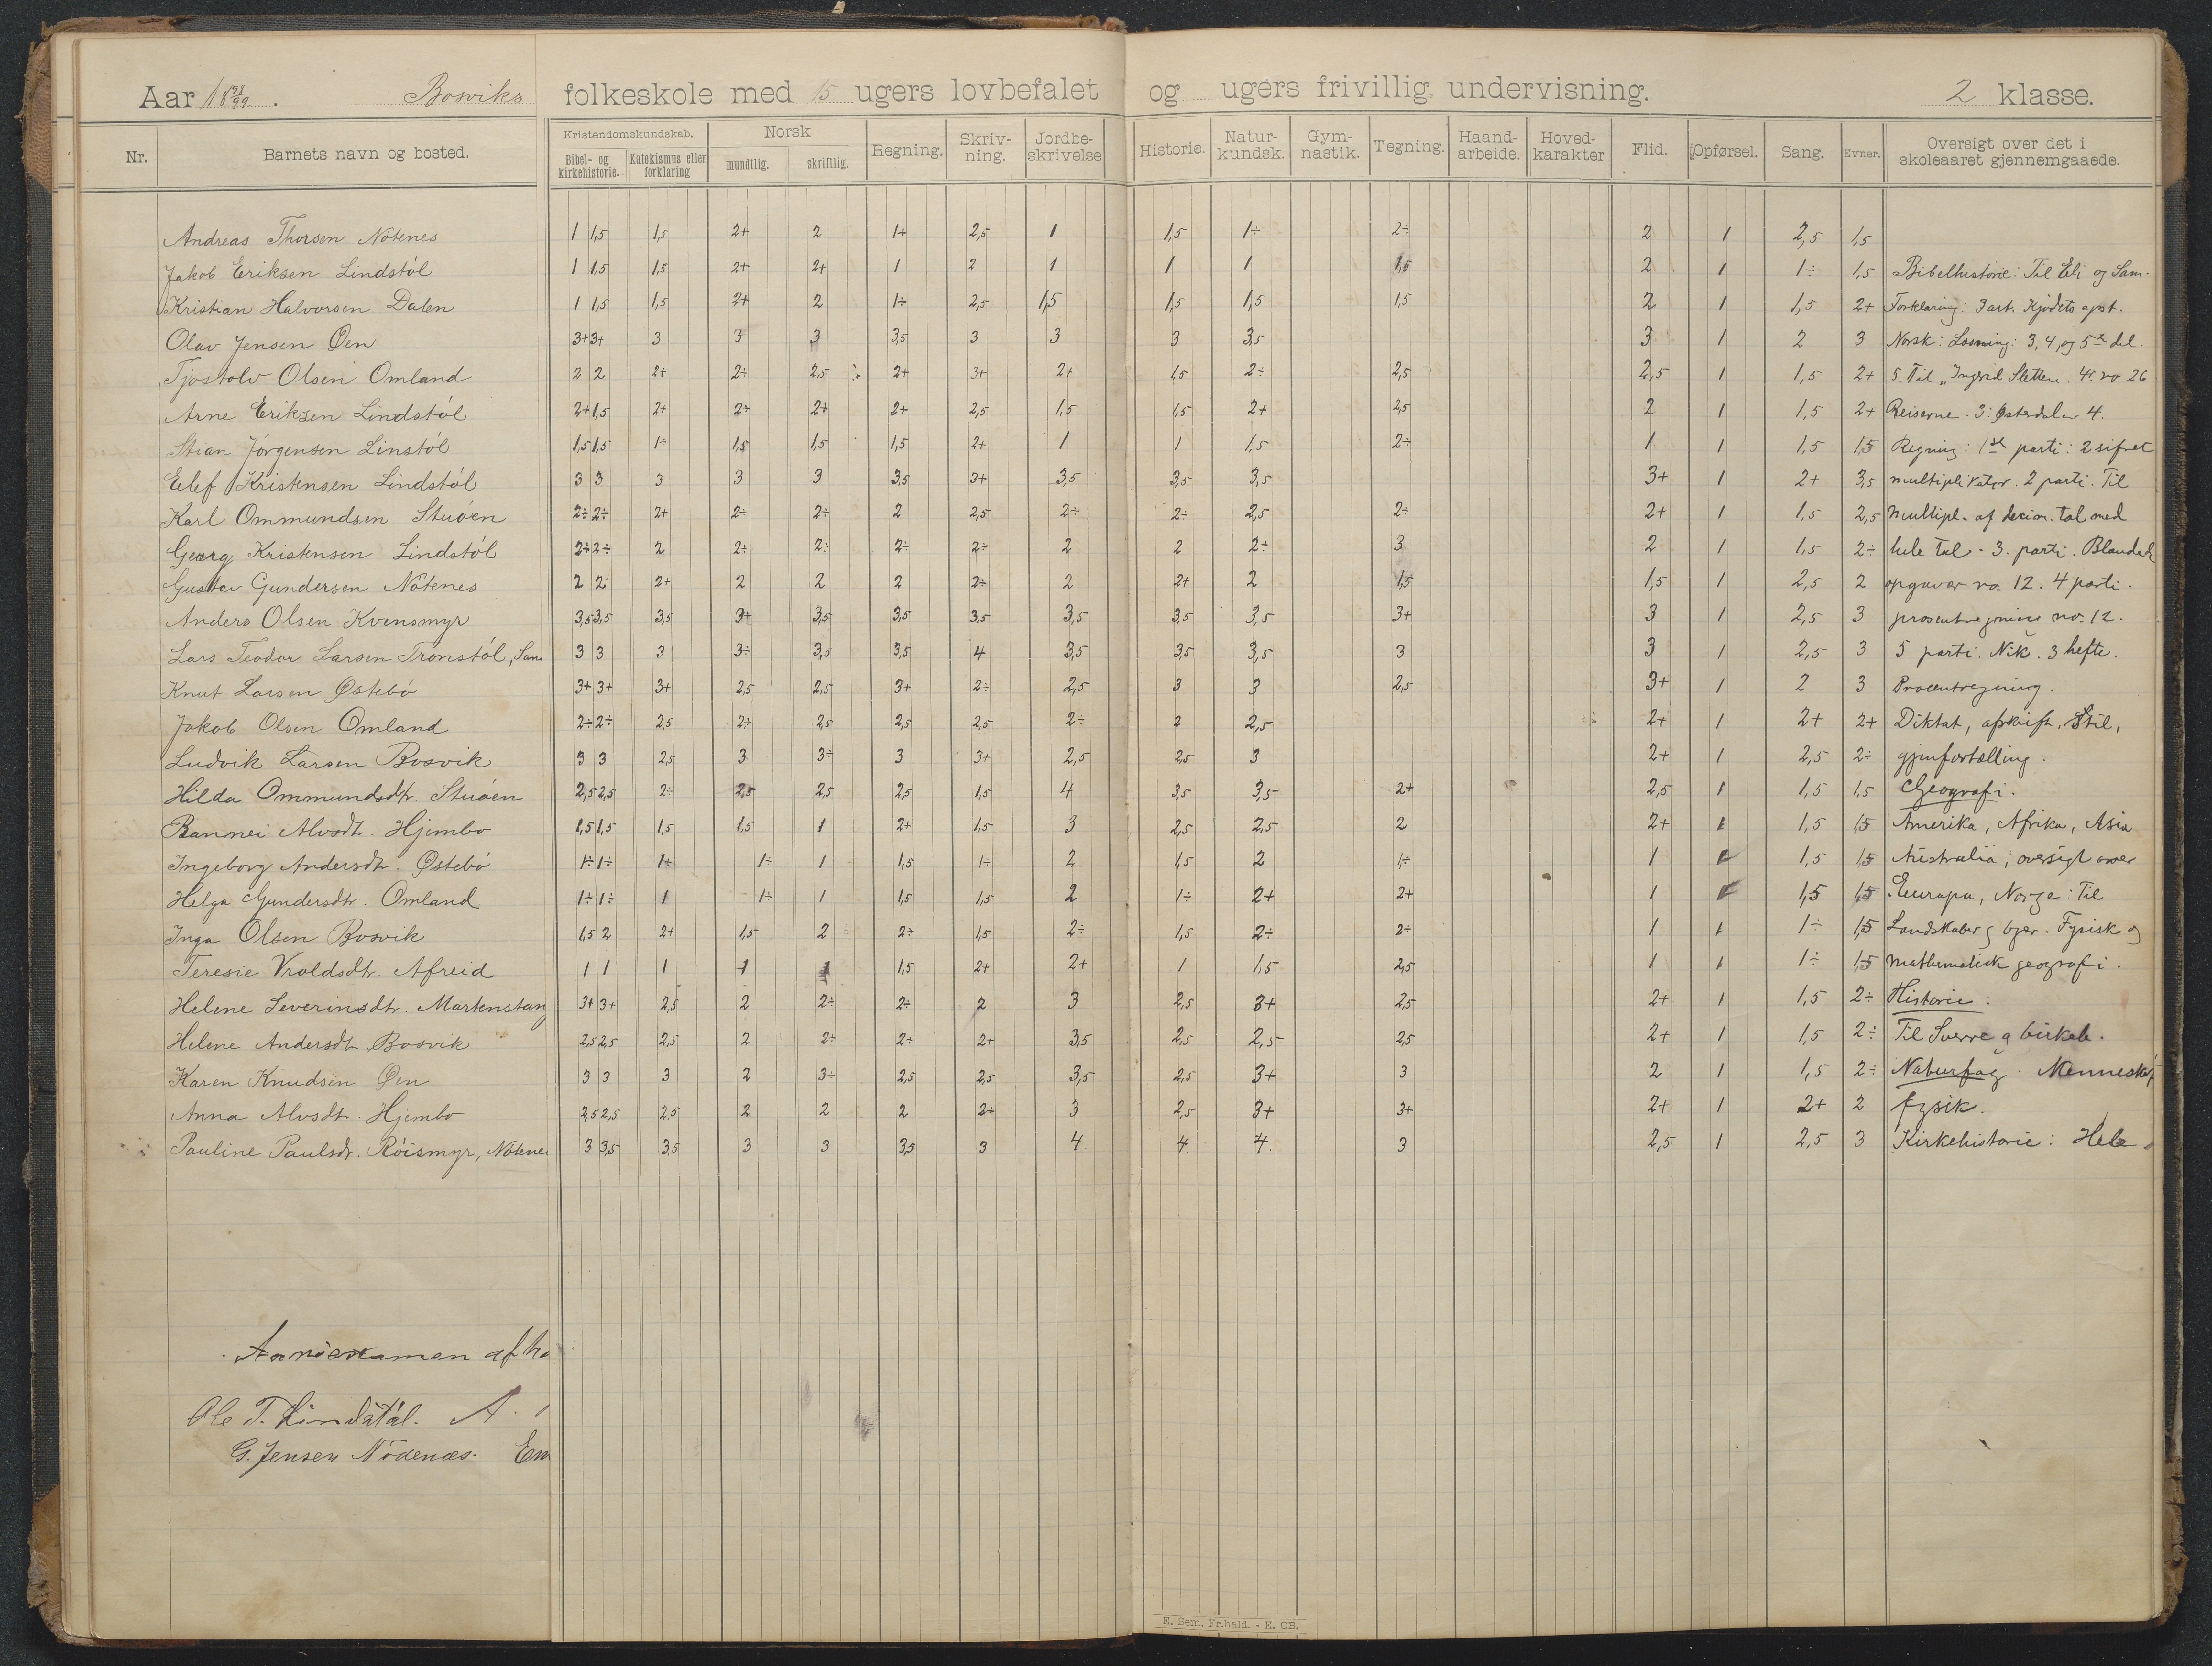 Aar 18 98/99. Bosviks folkeskole med 15 ugers lovbefalet og ugers frivillig undervisning. 2 klasse.
Nr. Barnets navn og bosted. Kristendomskundskab. Bibel- og kirkehistorie. Katekismus eller forklaring Norsk mundtlig. skriftlig. Regning. Skriv-ning. Jordbe-skrivelse Historie. Natur-kundsk. Gym-nastik. Tegning. Haand-arbeide. Hoved-karakter Flid. Opførsel. Sang. Evner. Oversigt over det i skoleaaret gjennemgaaede.
Andreas Thorsen Nötenes 1 1,5 1,5 2+ 2 1+ 2,5 1 1,5 1÷ 2÷ 2 1 2,5 1,5
Jakob Eriksen Lindstöl 1 1,5 1,5 2+ 2+ 1 2 1 1 1 1,5 2 1 1÷ 1,5 Bibelhistorie: Til Eli og Sam.
Kristian Halvorsen Dalen 1 1,5 1,5 2+ 2 1÷ 2,5 1,5 1,5 1,5 1,5 2 1 1,5 2+ Forklaring: 3 art. Kjödets opst.
Olav Jensen Øen 3+ 3+ 3 3 3 3,5 3 3 3 3,5 3 1 2 3 Norsk: Læsning: 3, 4 og 5te del.
Tjostolv Olsen Omland 2 2 2+ 2÷ 2,5 2+ 3+ 2+ 1,5 2÷ 2,5 2,5 1 1,5 2+ 5. Til „Ingrid Sletten. 4. no 26
Arne Eriksen Lindstöl 2+ 1,5 2+ 2+ 2+ 2+ 2,5 1,5 1,5 2+ 2,5 2 1 1,5 2+ Reiserne. 3: Østerdalen 4.
Stian Jörgensen Linstöl 1,5 1,5 1÷ 1,5 1,5 1,5 2+ 1 1 1,5 2÷ 1 1 1,5 1,5 Regning: 1ste parti: 2 sifret
Elef Kristensen Lindstöl 3 3 3 3 3 3,5 3+ 3,5 3,5 3,5 3+ 1 2+ 3,5 multiplikator. 2 parti. Til
Karl Ommundsen Stuöen 2÷ 2÷ 2+ 2÷ 2÷ 2 2,5 2÷ 2÷ 2,5 2÷ 2+ 1 1,5 2,5 multipl. af decim. tal med
Georg Kristensen Lindstöl 2÷ 2÷ 2 2÷ 2÷ 2÷ 2÷ 2 2 2÷ 3 2 1 1,5 2÷ hele tal. 3. parti. Blanded
Gustav Gundersen Nötenes 2 2 2+ 2 2 2 2÷ 2 2+ 2 1,5 1,5 1 2,5 2 opgaver no. 12. 4 parti.
Anders Olsen Kvensmyr 3,5 3,5 3,5 3+ 3,5 3,5 3,5 3,5 3,5 3,5 3+ 3 1 2,5 3 prosentregning no. 12.
Lars Teodor Larsen Tronstöl, San 3 3 3 3÷ 3,5 3,5 4 3,5 3,5 3,5 3 3 1 2,5 3 5 parti. Nik. 3 hefte.
Knut Larsen Østebö 3+ 3+ 3+ 2,5 2,5 3+ 2÷ 2,5 3 3 2,5 3+ 1 2 3 Procentregning.
Jakob Olsen Omland 2÷ 2÷ 2,5 2+ 2,5 2,5 2,5 2÷ 2 2,5 2+ 1 2+ 2+ Diktat, afskrift, Stil,
Ludvik Larsen Bosvik 3 3 2,5 3 3÷ 3 3+ 2,5 2,5 3 2+ 1 2,5 2÷ gjenfortælling.
Hilda Ommundsdtr. Stuöen 2,5 2,5 2÷ 2,5 2,5 2,5 1,5 4 3,5 3,5 2+ 2,5 1 1,5 1,5 Geografi.
Rannei Alvsdt. Hjembo 1,5 1,5 1,5 1,5 1 2+ 1,5 3 2,5 2,5 2 2+ 1 1,5 1,5 Amerika, Afrika, Asia
Ingeborg Andersdt. Østebö 1÷ 1÷ 1+ 1÷ 1 1,5 1÷ 2 1,5 2 1÷ 1 1 1,5 1,5 Australia, oversigt over
Helga Gundersdtr. Omland 1÷ 1÷ 1 1÷ 1 1,5 1,5 2 1÷ 2+ 2+ 1 1 1,5 1,5 Europa, Norge: Til
Inga Olsen Bosvik 1,5 2 2+ 1,5 2 2÷ 1,5 2÷ 1,5 2÷ 2÷ 1 1 1÷ 1,5 Landskaber og byer. Fysisk og
Teresie Vroldsdtr. Afreid 1 1 1 1 1 1,5 2+ 2+ 1 1,5 2,5 1 1 1÷ 1,5 mathematisk geografi.
Helene Severinsdtr. Martenstang 3+ 3+ 2,5 2 2÷ 2÷ 2 3 2,5 3+ 2,5 2+ 1 1,5 2÷ Historie:
Helene Andersdt. Bosvik 2,5 2,5 2,5 2 2÷ 2÷ 2+ 3,5 2,5 2,5 2,5 2+ 1 1,5 2÷ Til Sverre og birkeb.
Karen Knudsen Øen 3 3 3 2 3÷ 2,5 2,5 3,5 2,5 3+ 3 2 1 1,5 2÷ Naturfag. Mennesket,
Anna Alvsdt. Hjembo 2,5 2,5 2,5 2 2 2 2÷ 3 2,5 3+ 3+ 2+ 1 2+ 2 fysik.
Pauline Paulsdr. Röismyr, Nötene 3 3,5 3,5 3 3 3,5 3 4 4 4. 3 2,5 1 2,5 3 Kirkehistorie: Hele
af ho
Ole T. Lindstöl. A.
G. Jensen Nödenæs. Em
E. Sem, Fr.hald. - E. CB.